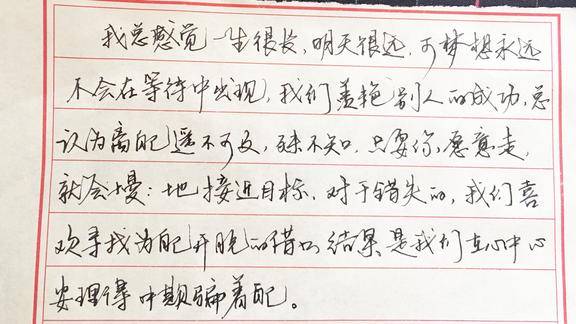 我总感觉一生很长,明天很远,可梦想永远
不会在等待中出现,我们羡艳别人的成功,总
认为离自己遥不可及,殊不知,只要你愿意走,
就会慢:地接近目标,对于错失的,我们喜
欢寻找为自己开脱的借口结果是我们在心中心
安理得中欺骗着自己。